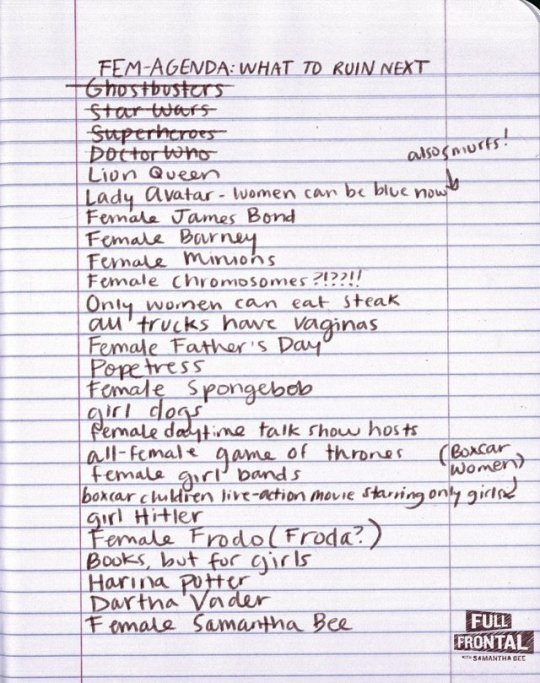 FEM-AGENDA: WHAT TO RUIN NEXT
Ghostbusters
Star Wars
Superheroes
Doctor Who
also smurfs!
Lion Queen
Lady Avatar - women can be blue now
Female James Bond
Female Barney
Female Minions
Female Chromosomes?!??!!
Only women can eat steak
all trucks have vaginas
Female Father's Day
Popetress
Female Spongebob
girl dogs
female daytime talk show hosts
all-female game of thrones
(Boxcar Women)
female girl bands
boxcar children live-action movie starring only girls
girl Hitler
Female Frodo (Froda?)
Books, but for girls
Harina Potter
Dartha Vader
Female Samantha Bee
FULL
FRONTAL
WITH SAMANTHA BEE